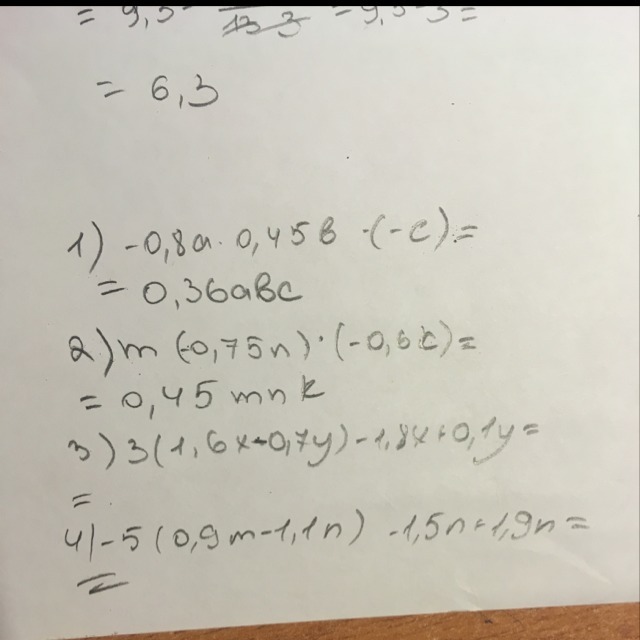 = 9,3 - 13·3 = 9,3-3=
= 6,3
1) -0,8a · 0,45в · (-c) =
= 0,36авс
2) m (-0,75n) · (-0,6k) =
= 0,45 mnk
3) 3(1,6x-0,7y) - 1,8x+0,1y=
=
4) -5 (0,9m-1,1n) -1,5n+1,9n=
=